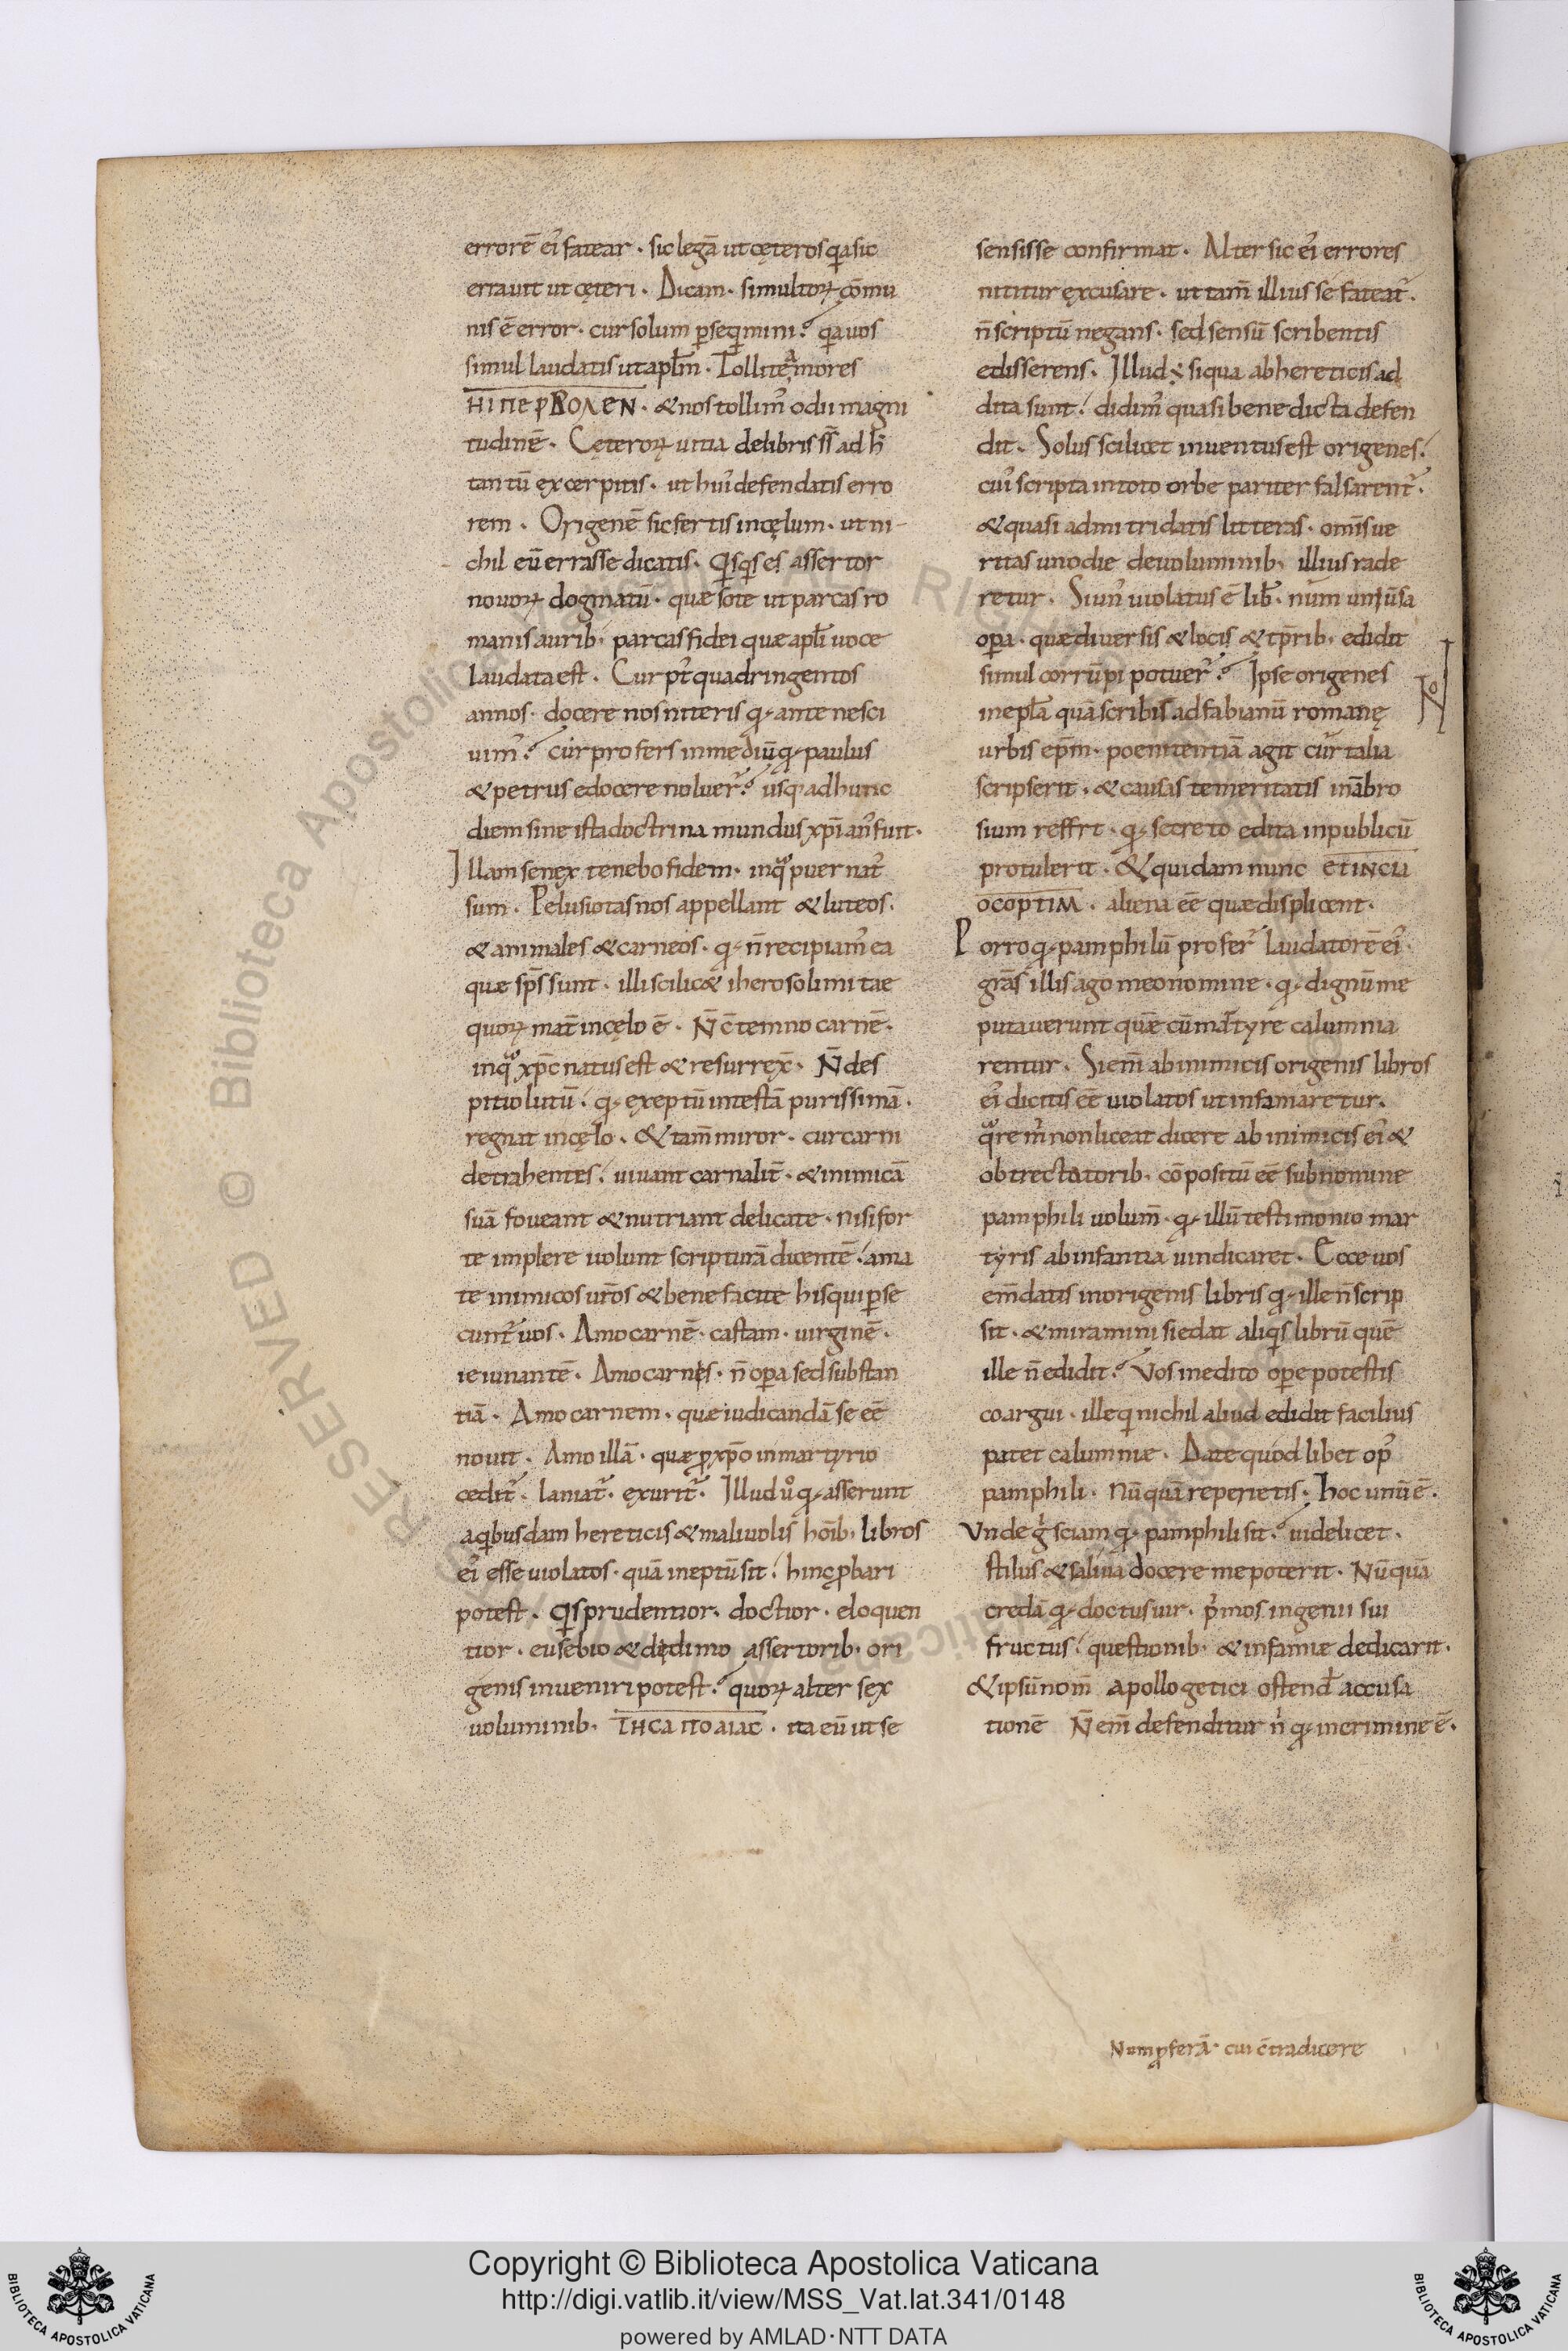 errorē ei᷒ fatear · sic legā ut cęteros q̄a sic
erravit ut cęteri · Dicam · si multoꝝ cōmu
nis ē error · cur solum ꝑseq̄mini? q̄a uos
simul laudatis ut apl̄m · Tollite amores
ΗΙΠΕΡΒΟΛΕΝ · & nos tollim᷒ odii magni
tudinē · Cęteroꝝ uitia de libris ss̄ ad h̄
tantū excerpitis · ut hui᷒ defendatis erro
rem · Origenē sic fertis in cęlum · ut ni-
chil eū errasse dicatis · Q̄sq̄s es assertor
novoꝝ dogmatū · quæso te ut parcas ro
manis aurib; parcas fidei quæ apl̄i uoce
laudata est · Cur p᷒t quadringentos
annos · docere nos niteris qđ ante nesci
uim᷒? cur profers in mediū qđ paulus
& petrus edocere noluer̄? usq; ad hunc
diem sine ista doctrina mundus xp̄ian᷒ fuit ·
Illam senex tenebo fidem · in qͣ puer nat᷒
sum · Pelusiotas nos appellant & luteos ·
& animales & carneos · qđ n̄ recipiam᷒ ea
quæ sp̄s sunt · illi scilic& iherosolimitae
quoꝝ mat̄ in cęlo ē · N̄ c̄temno carnē ·
in qͣ xp̄c natus est & resurrex̄ · N̄ des
pitio lutū · qđ exceptū in testā purissimā ·
regnat in cęlo · & tam̄ miror · cur carni
detrahentes · uiuant carnalit̄ · & inimicā
suā foueant & nutriant delicate · nisi for
te implere uolunt scripturā dicentē · ama
te inimicos ur̄os & benefacite his qui ꝑse
cunt᷒ uos · Amo carnē · castam · uirginē ·
ieiunantē · Amo carnes · n̄ opa sed substan
tiā · Amo carnem · quæ iudicandā se eē
nouit · Amo illā · quæ ꝓ xp̄o in martyrio
cedit᷒ · laniat᷒ · exurit᷒ · Illud uͦ qđ asserunt
a q̄busdam hereticis & maliuolis hoīb; libros
ei᷒ esse uiolatos · quā ineptū sit · hinc ꝓbari
potest · Q̄s prudentior · doctior · eloquen
tior · eusebio & didimo assertorib; ori
genis inveniri potest? quoꝝ alter sex
uoluminib; ΤΗСΑΠΟΛΙΑС · ita eū ut se
sensisse confirmat · Alter sic ei᷒ errores
nititur excusare · ut tam̄ illius se fateat᷒ ·
n̄ scriptū negans · sed sensū scribentis
edisserens · Illud ÷ siqua ab hereticis ad
dita sunt · didim᷒ quasi bene dicta defen
dit · Solus scilicet inventus est origenes ·
cui᷒ scripta in toto orbe pariter falsarent᷒ ·
& quasi ad mitridatis litteras · omīs ue
ritas uno die de voluminib; illius rade
retur · Si un᷒ uiolatus ē lib̄ · num uniūsa
opa · quæ diversis & locis & tp̄rib; edidit
simul corrūpi potuer̄? Ipse origenes
in epl̄a quā scribis ad fabianū romanę
urbis ep̄m · poenitentiā agit cur talia
scripserit · & causas temeritatis in ābro
sium reffrt · qđ secreto edita in publicū
protulerit · & quidam nunc ETINCLI
OCOPTIM · aliena eē quæ displicent ·
Porro qđ pamphilū profer᷒ laudatorē ei᷒ ·
grā̄s illis ago meo nomine · qđ dignū me
putaverunt quē cū mārtyre calumnia
rentur · Si em̄ ab inimicis origenis libros
ei᷒ dicitis eē uiolatos ut infamaretur ·
qͣre m̄ non liceat dicere ab inimicis ei᷒ &
obtrectatorib; cōpositū eē sub nomine
pamphili uolum̄ · qđ illū testimonio mar
tyris ab infantia vindicaret · Ecce uos
em̄datis in origenis libris qđ ille n̄ scrip
sit · & miramini si edat aliq̄s librū quē
ille n̄ edidit? Vos inedito ope potestis
coargui · ille q̄ nichil aliud edidit facilius
patet calumniæ · Date quodlibet op᷒
pamphili · nūquā reperietis · hoc unū ē ·
Vnde ḡ sciam qđ pamphili sit? videlicet ·
stilus & saliua docere me poterit · Nūquā
credā qđ doctus uir · p̄mos ingenii sui
fructus · questionib; & infamiæ dedicarit ·
& ipsū nom̄ apollogetici ostend̄ accusa
tionē N̄ em̄ defenditur n̄ qđ in crimine ē ·
Num ꝓferā · cui c̄tradicere
Copyright © Biblioteca Apostolica Vaticana
http://digi.vatlib.it/view/MSS_Vat.lat.341/0148
powered by AMLAD·NTT DATA